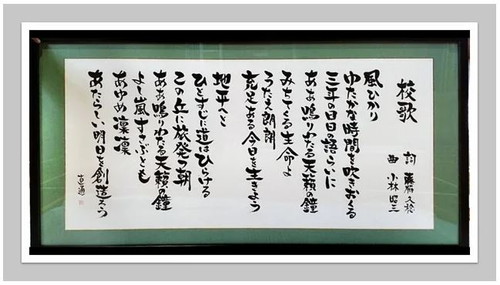 校歌
詞 藤原
曲 小林昭三
風ひかり
ゆたかな時間を吹きおくる
三年の日日の語らいに
ああ鳴りわたる天籟の鐘
みちてくる生命よ
うたえ朗朗
充足ある今日を生きよう
地平へと
ひとすじに道はひらける
この丘に旅発つ朝
ああ鳴りわたる天籟の鐘
よし嵐すさぶとも
あゆめ凛凛
あたらしい明日を創造ろう